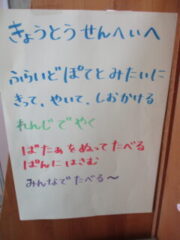 きょうとうせんへいへ
ふらいどぽてとみたいに
きって、やいて、しおかける
れんじでやく
ばたあをぬってたべる
ぱんにはさむ
みんなでたべる〜